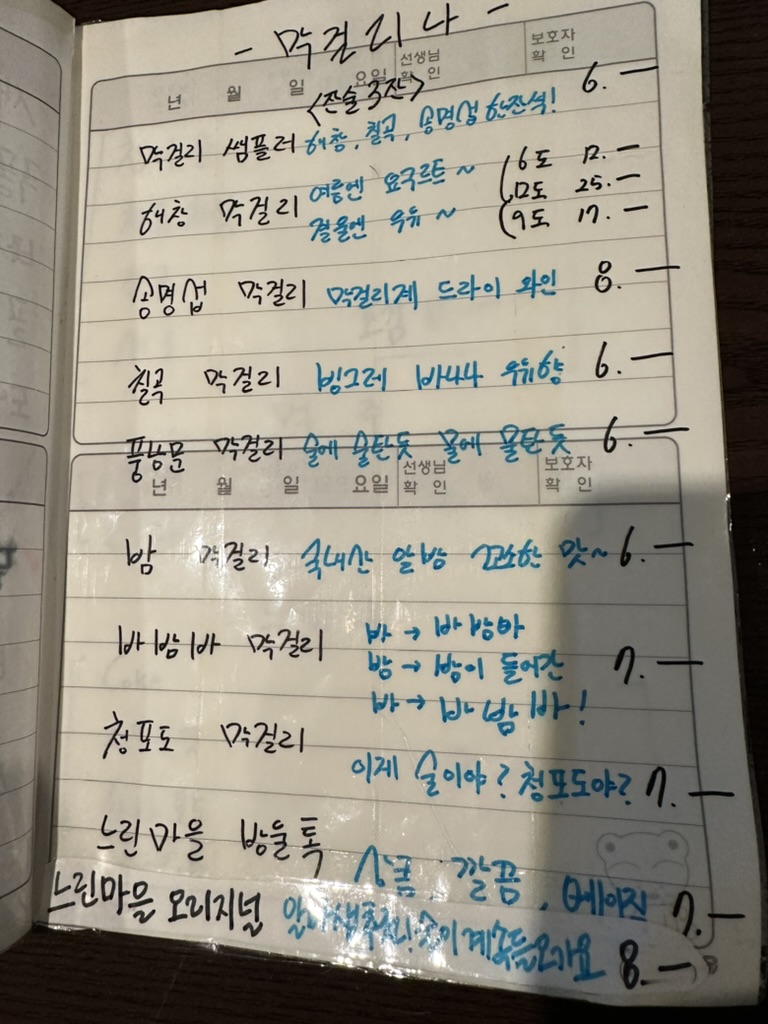 - 막걸리나 -
년 월 일 요일 선생님 확인 보호자 확인
<잔술 3잔>
막걸리 쌤플러 해창, 칠곡, 송명섭 한잔씩! 6.—
해창 막걸리 여름엔 요구르트~ 겨울엔 우유~ (6도 12.—
(12도 25.—
(9도 17.—
송명섭 막걸리 막걸리계 드라이 와인 8.—
칠곡 막걸리 빙그레 바나나 우유향 6.—
풍농문 막걸리 술에 술탄듯 물에 물탄듯 6.—
년 월 일 요일 선생님 확인 보호자 확인
밤 막걸리 국내산 알밤 고소한 맛~ 6.—
바밤바 막걸리 바 → 바밤바
밤 → 밤이 들어간 7.—
바 → 바밤바!
청포도 막걸리
이제 술이야? 청포도야? 7.—
느린마을 방울톡
상큼, 깔끔, 7.—
느린마을 오리지널 술이 계속들어가요 8.—